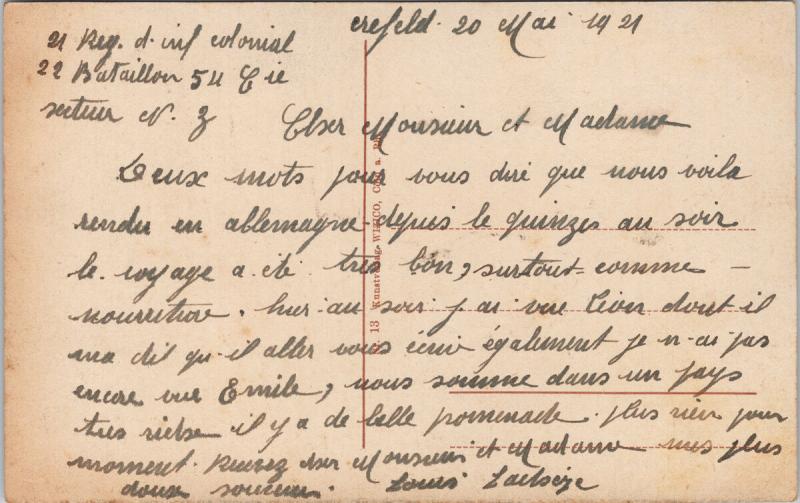 crefeld 20 Mai 1921
21 Reg. d. inf colonial
22 Bataillon 54 Cie
secteur N. 3
Cher Monsieur et Madame
Deux mots pour vous dire que nous voila
rendu en allemagne depuis le quinzes au soir
le voyage a été très bon, surtout comme –
nourriture. hier au soir j ai vue Léon dont il
ma dit qu-il aller vous écrir également je n-ai pas
encore vue Emile, nous somme dans un pays
très riche il y a de belle promenade. plus rien pour
moment. Recevez cher Monsieur et Madame mes plus
doux souvenir. Louis
13 Kunstverlag WEHCO,